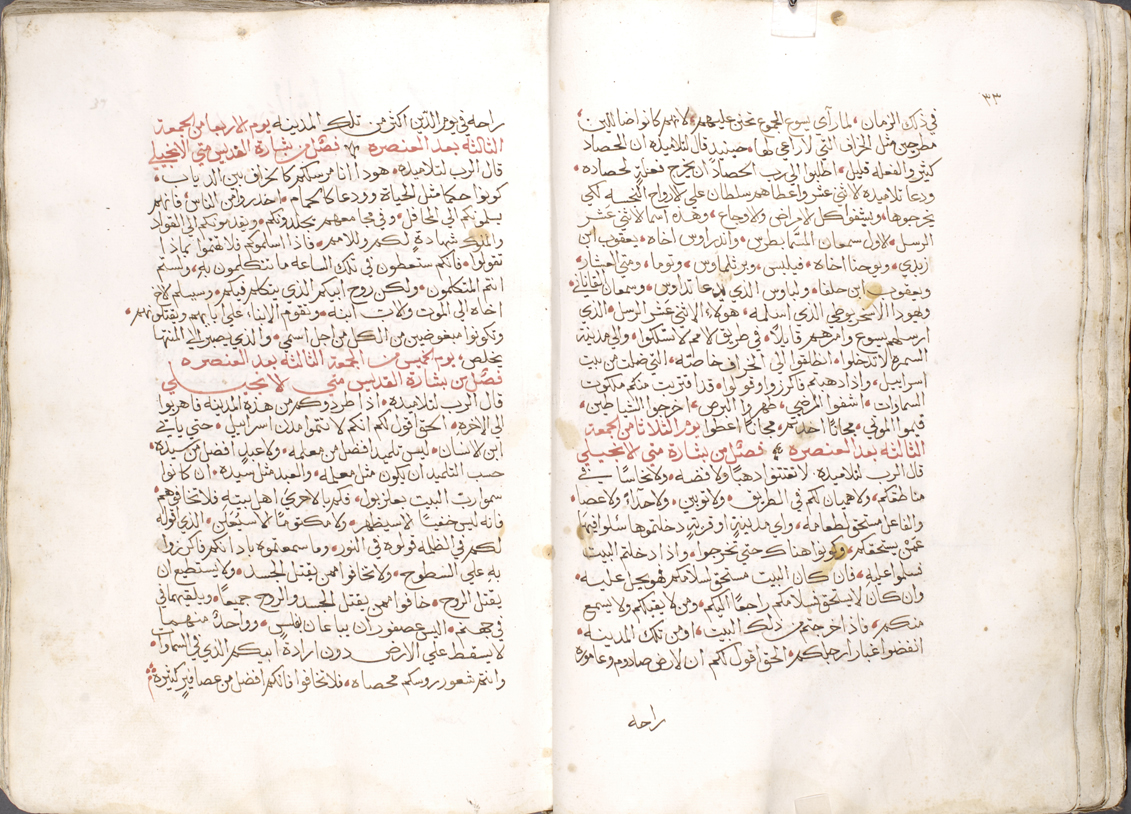 ٣٣
في ذلك الزمان، لما رآى يسوع الجموع تحنن عليهم، لانهم كانوا ضالين،
مطروحين مثل الخراف التي لا راعي لها، حينيد قال لتلاميذه ان الحصاد
كثير والفعله قليل، اطلبوا الى رب الحصاد ان يخرج فعلهٍ لحصاده،
ودعا تلاميذه الاثني عشر واعطاهم سلطان علي الارواح النجسه لكي
يخرجوها، ويشفوا كل الامراض والاوجاع، وهذه اسما الاثني عشر
الرسل، الاول سمعان المسما بطرس، واندراوس اخاه، يعقوب ابن
زبدي، ويوحنا اخاه، فيلبس، وبرتلماوس، وتوما، ومتي العشار،
ويعقوب ابن حلفا، ولباوس الذي يدعا تداوس، وسمعان القاناني،
ويهودا الاسخريوطي الذي اسلمه، هولاء الاثني عشر الرسل، الذي
ارسلهم يسوع وامرهم قايلاً، في طريق الامم لا تسلكوا، والي مدينة
السمره لا تدخلوا، انطلقوا الى الخراف خاصّه، التي ضلت من بيت
اسراييل، واذا ذهبتم فاكرزوا وقولوا، قد اقتربت منكم ملكوت
السماوات، اشفوا المرضي، طهروا البرص، اخرجوا الشياطين،
قيموا الموتي، مجاناً اخدتم، مجاناً اعطوا يوم الثلاثا من الجمعة
الثالثة بعد العنصره فصلٌ من بشارة متي الانجيلي
قال الرب لتلاميذه، لا تقتنوا ذهباً ولا فضه، ولا نحاساً في
مناطقكم، ولا هميان لكم في الطريق، ولا ثوبين، ولا حذاً، ولا عصا،
والفاعل مستحق لطعامه، واي مدينةٍ او قريةٍ دخلتموها سلوا فيها
عَمّن يستحقكم، وكونوا هناك حتي تخرجوا، واذا دخلتم البيت
فسلموا عليه، فان كان البيت مستحق سلامكم فهو يحل عليه،
وان كان لا يستحق فسلامكم راجعاً اليكم، ومن لا يقبلكم ولا يسمع
منكم، فاذا خرجتم من ذلك البيت، او من تلك المدينه،
انفضوا غبار ارجلكم، الحق اقول لكم ان لارض صادوم وعاموره
راحه
راحه في يوم الدين اكثر من تلك المدينه يوم الاربعا من الجمعة
الثالثة بعد العنصره فصلٌ من بشارة القديس متي الانجيلي
قال الرب لتلاميذه، هوذا انا مرسلكم كالخراف بين الدياب،
كونوا حكما مثل الحياة وودعا كالحمام، احذروا من الناس، فانهم
يسلمونكم الى المحافل، وفي مجامعهم يجلدونكم، ويقدمونكم الى القواد
والملوك شهادةٍ لهم وللامم، فاذا اسلموكم فلا تهتموا بماذا
تقولوا، فانكم ستعطون في تلك الساعه ما تتكلمون به، ولستم
انتم المتكلمون، ولكن روح ابيكم الذي يتكلم فيكم، وسيسلم الاخ
اخاه الى الموت والاب ابنه، ويقوم الابناء علي ابايهم ويقتلونهم،
وتكونوا مبغوضين من الكل من اجل اسمي، والذي يصبر الى المنتها
يخلص، يوم الخميس من الجمعة الثالثة بعد العنصره
فصلٌ من بشارة القديس متي الانجيلي
قال الرب لتلاميذه، اذا طردوكم من هذه المدينه فاهربوا
الى الاخره، الحق اقول لكم انكم لا تتموا مدن اسراييل، حتي ياتي
ابن الانسان، ليس تلميد افضل من معلمه، ولا عبدٍ افضل من سيده،
حسب التلميد ان يكون مثل معلمه، والعبد مثل سيده، ان كانوا
سموا رب البيت بعلزبول، فكم بالاحري اهل بيته فلا تخافوهم
فانه ليس خفياً الا سيظهر، ولا مكتوماً الا سيُعلن، الدي اقوله
لكم في الظلمه قولوه في النور، وما سمعتموه بادانكم فاكرزوا
به علي السطوح، ولا تخافوا ممن يقتل الجسد، ولا يستطيع ان
يقتل الروح، خافوا ممن يقتل الجسد والروح جميعاً، ويلقيهما في
في جهنم، اليس عصفوران يباعان بفلسٍ، وواحدٌ منهما
لا يسقط علي الارض دون ارادة ابيكم الذي في السماوات،
وانتم شعور روسكم محصاه، فلا تخافوا فانكم افضل من عصافيرٍ كثيرة